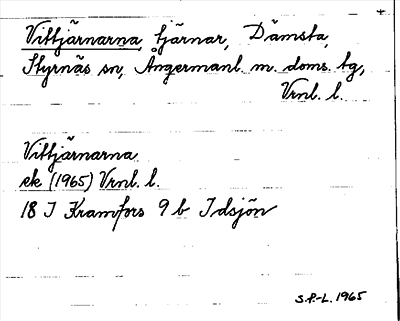 Vittjärnarna, tjärnar, Dämsta,
Styrnäs sn, Ångermanl. m. doms. tg,
Vrnl. l.
Vittjärnarna
ek (1965) Vrnl. l.
18 I Kramfors 9 b Idsjön
S.P.-L. 1965